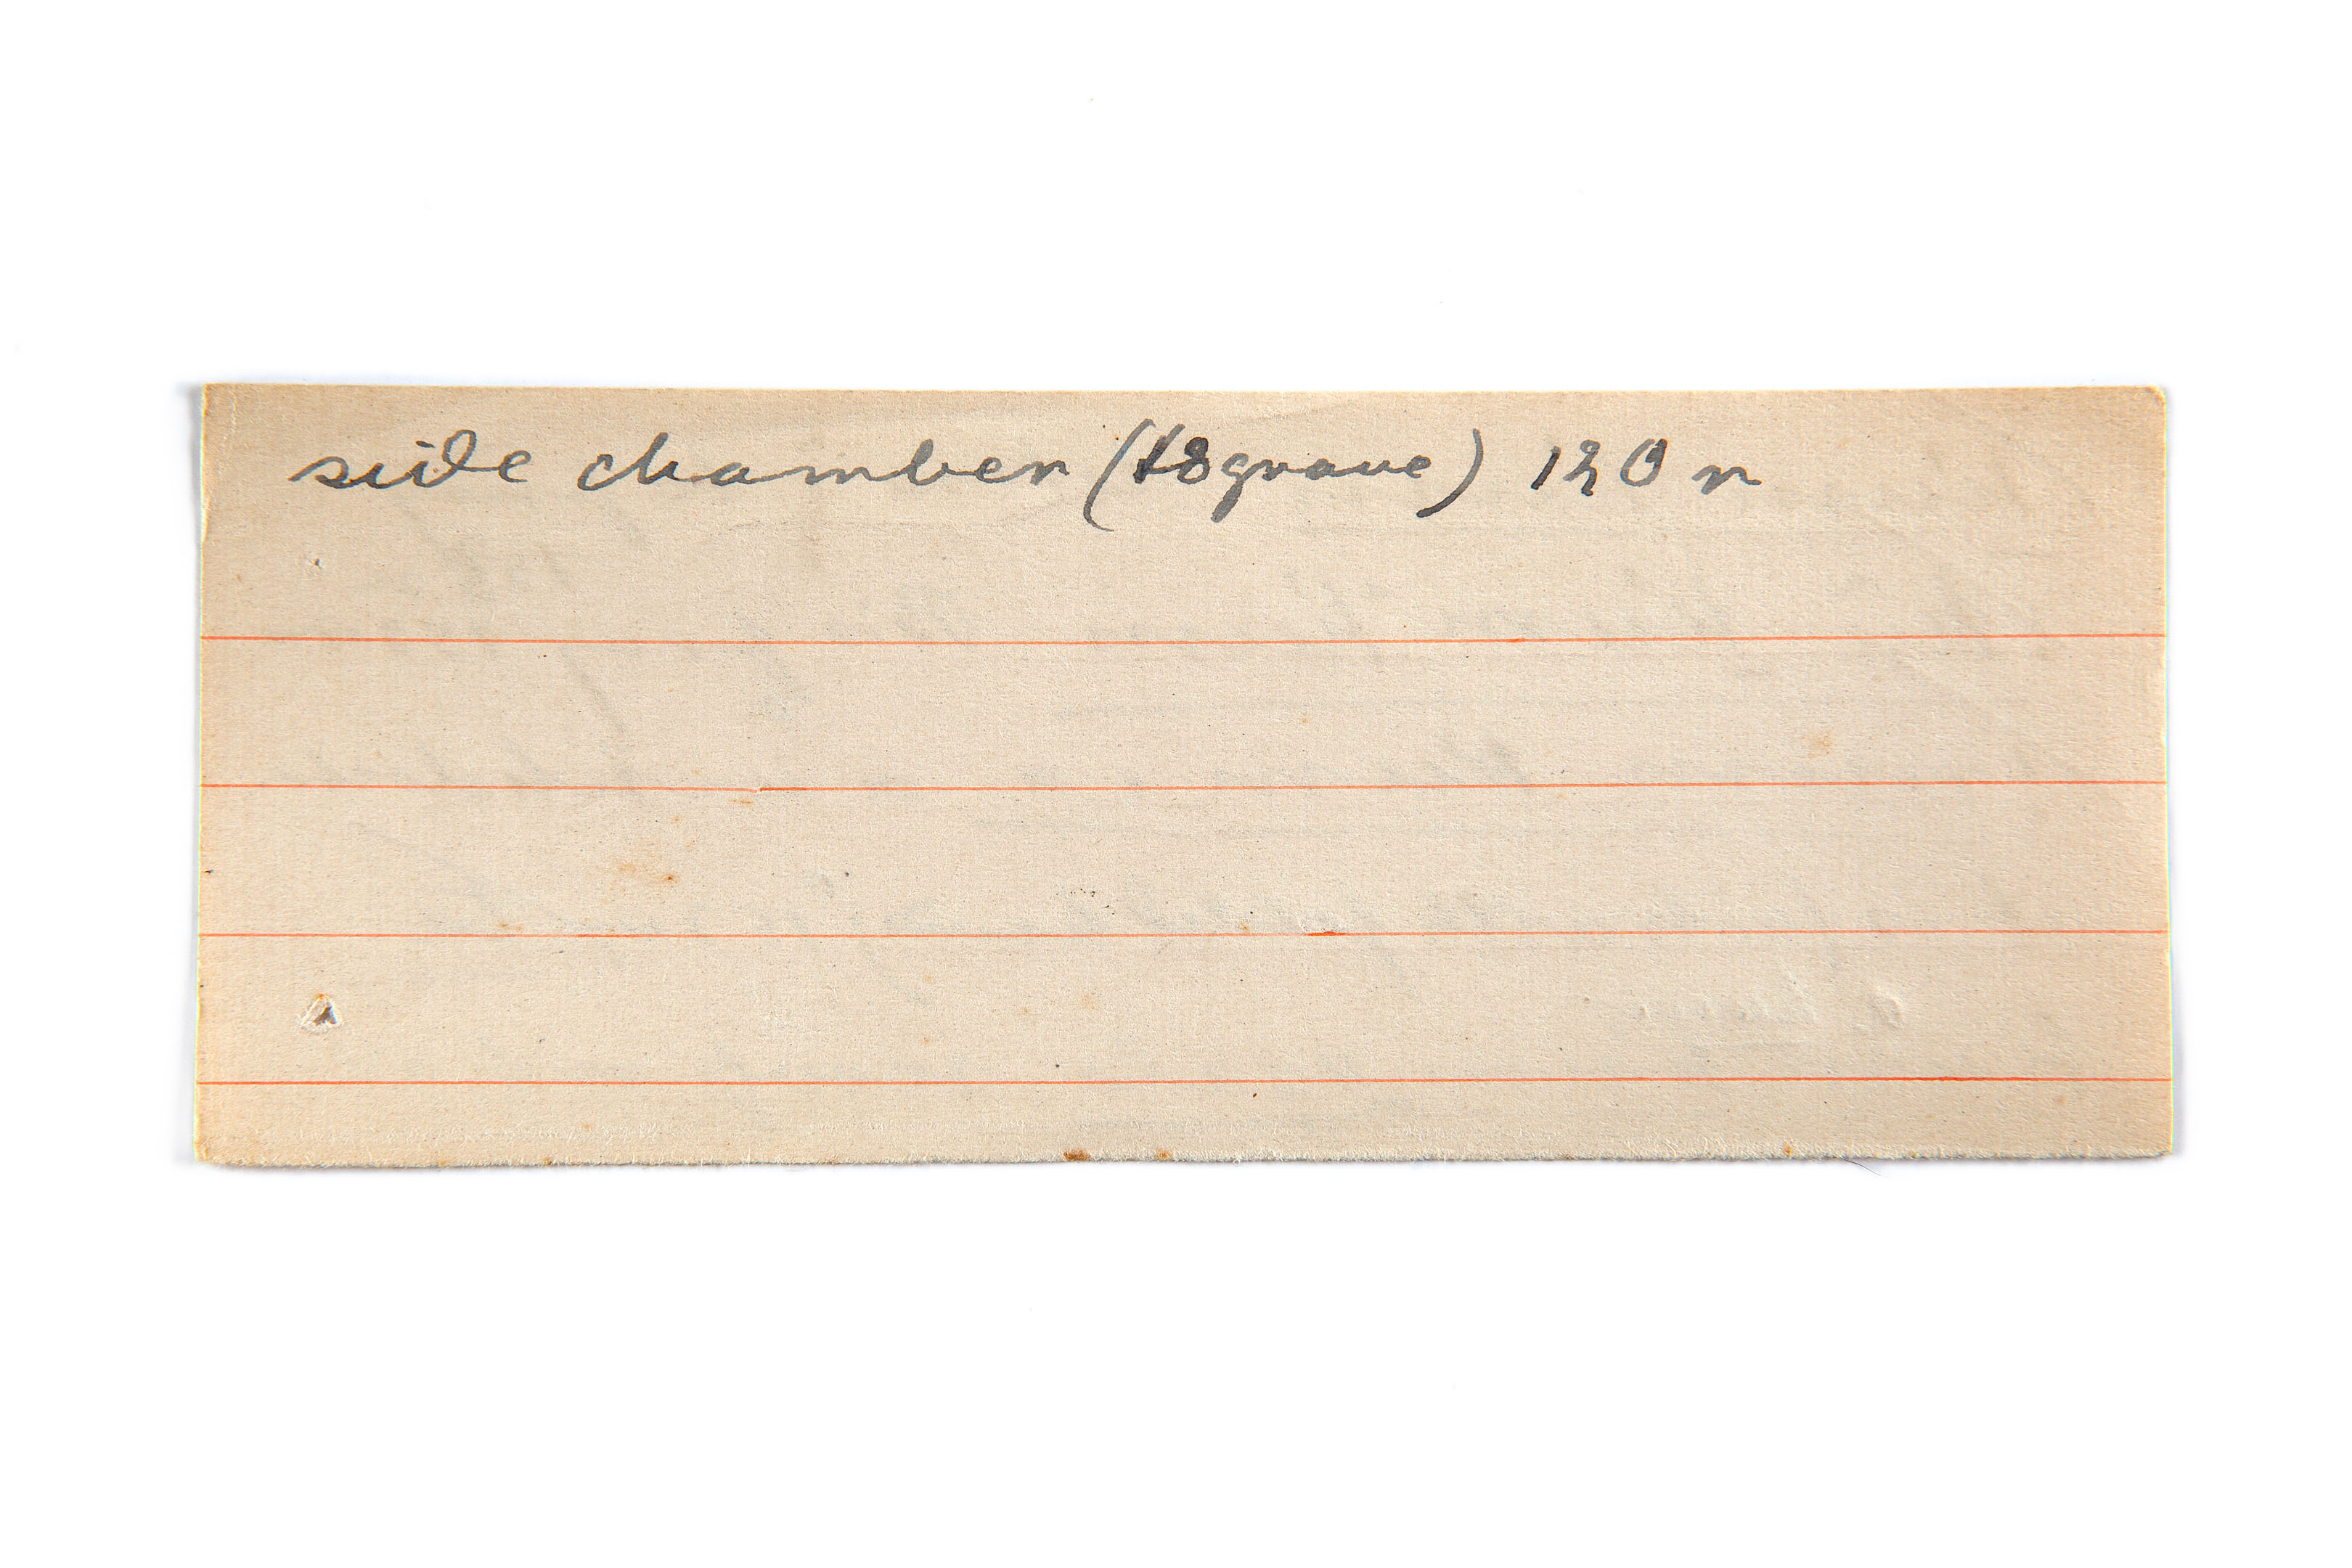 side chamber (to grave) 120 r